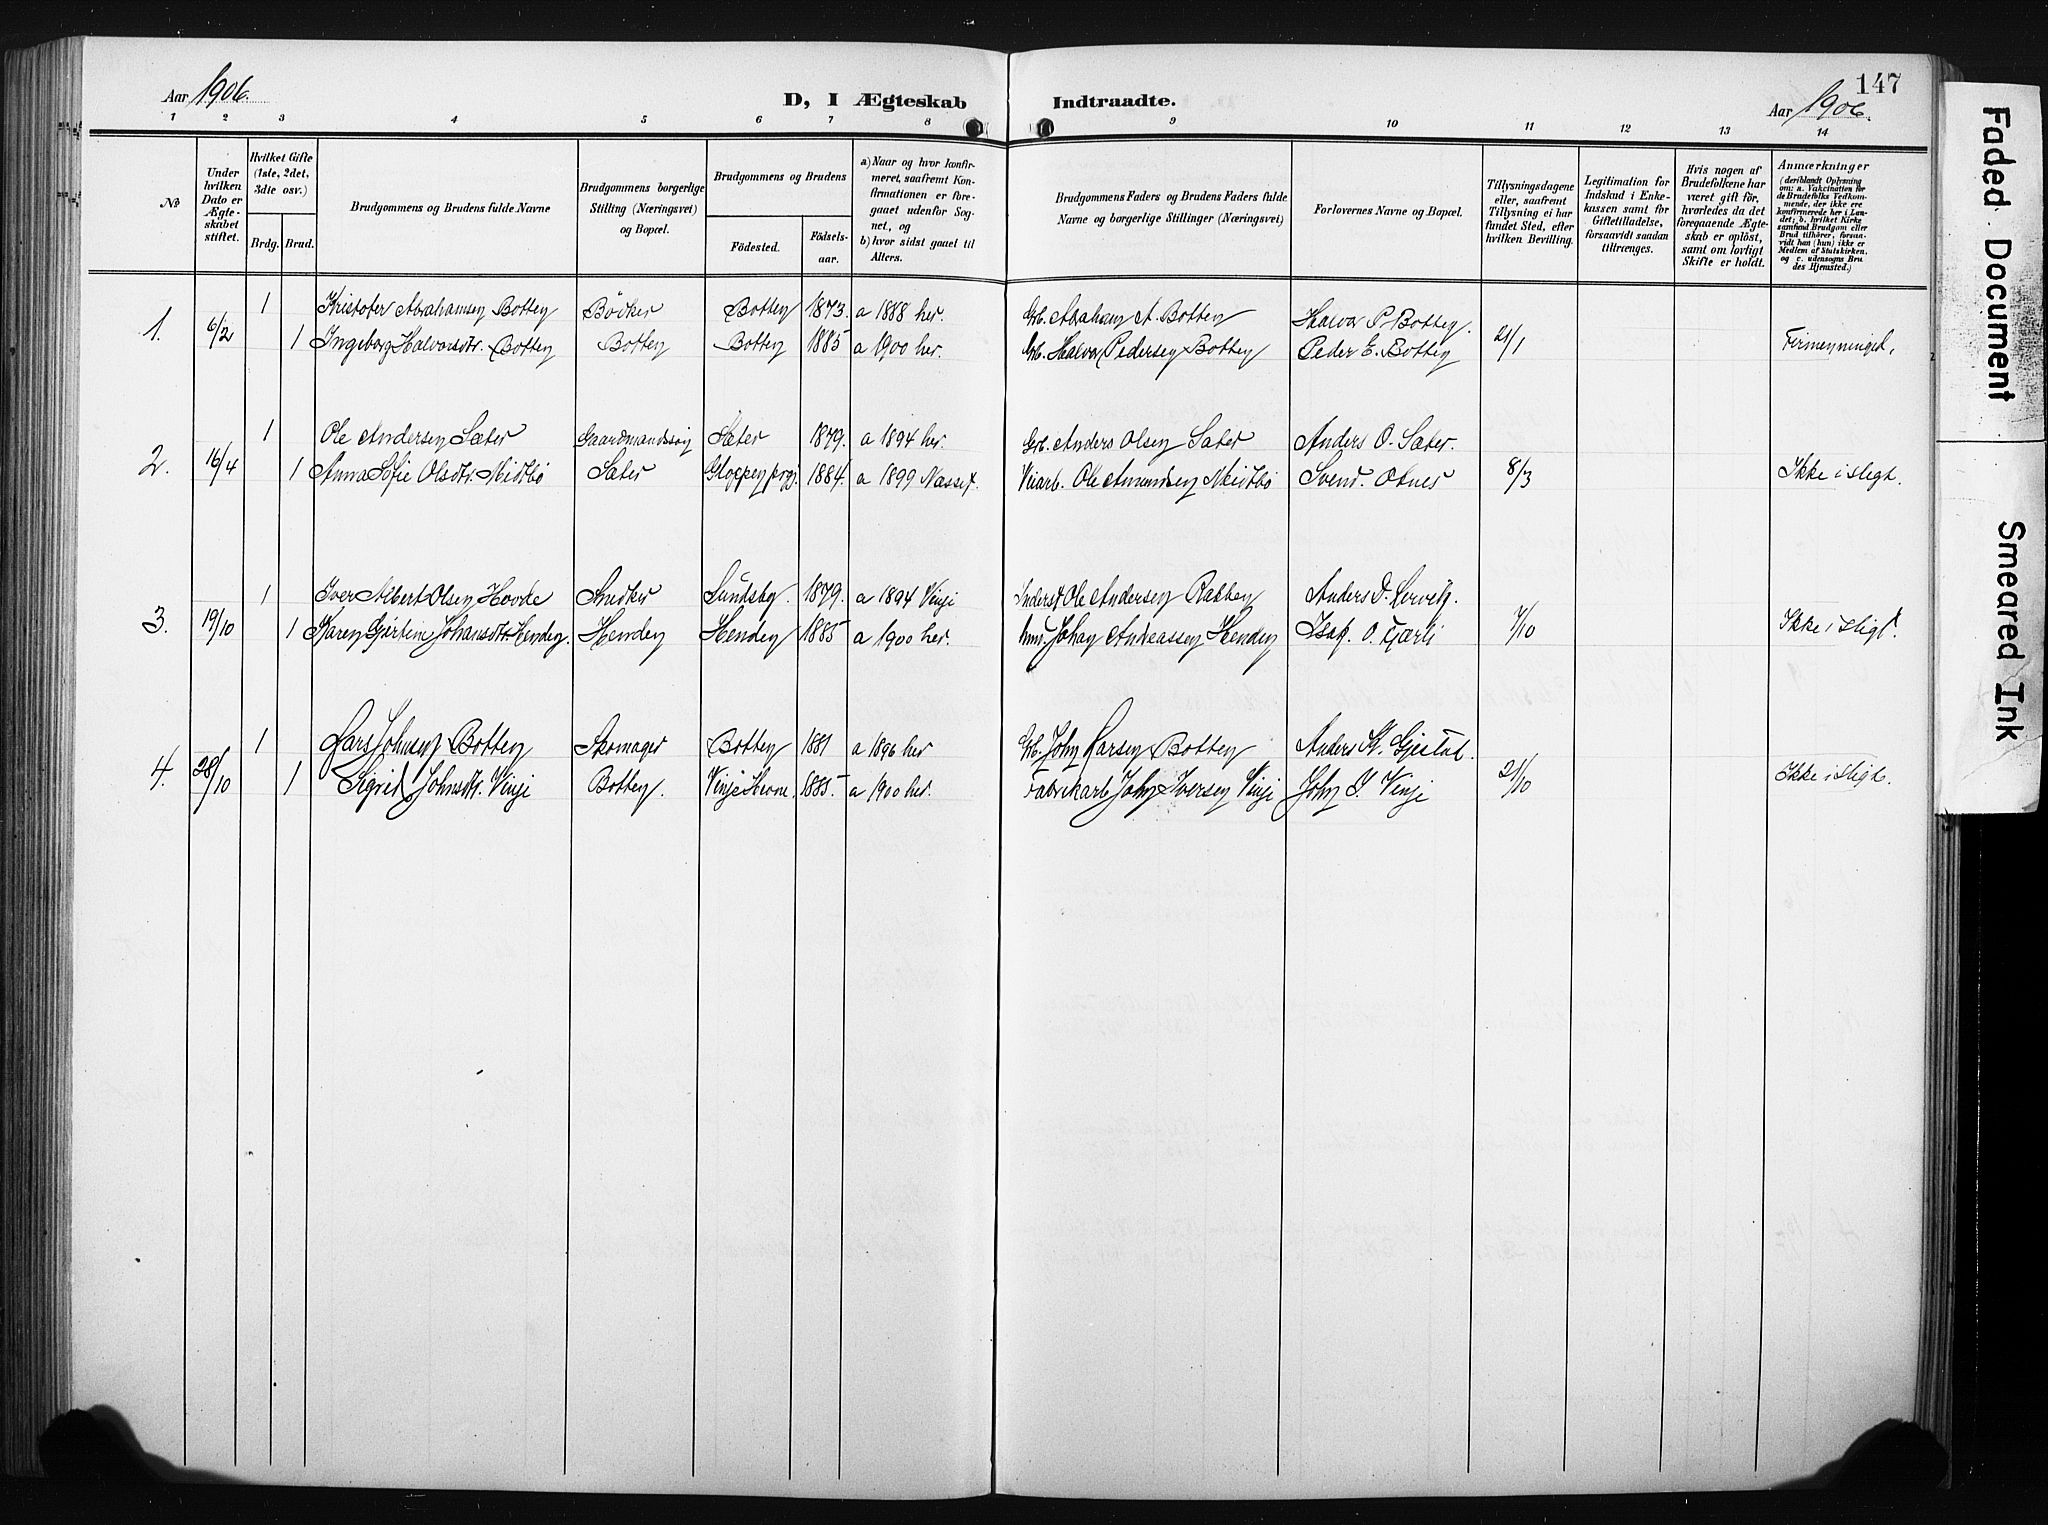 Aar 1906.
D, I Ægteskab Indtraadte.
147
Aar 1906.
1 2 3 4 5 6 7 8 9 10 11 12 13 14
No
Under hvilken Dato er Ægteskabet stiftet.
Hvilket Gifte (1ste, 2det, 3die osv.)
Brdg. Brud.
Brudgommens og Brudens fulde Navne
Brudgommens borgerlige Stilling (Næringsvei) og Bopæl.
Brudgommens og Brudens
Fødested. Fødselsaar.
a) Naar og hvor konfirmeret, saafremt Konfirmationen er foregaaet udenfor Sognet, og
b) hvor sidst gaaet til Alters.
Brudgommens Faders og Brudens Faders fulde Navne og borgerlige Stillinger (Næringsvei)
Forlovernes Navne og Bopæl.
Tillysningsdagene eller, saafremt Tillysning ei har fundet Sted, efter hvilken Bevilling.
Legitimation for Indskud i Enkekassen samt for Giftetilladelse, forsaavidt saadan tiltrænges.
Hvis nogen af Brudefolkene har været gift før, hvorledes da det foregaaende Ægteskab er opløst, samt om lovligt Skifte er holdt.
Anmærkninger
(deriblandt Oplysning om: a. Vakcination for de Brudefolks Vedkommende, der ikke ere konfirmerede her i Landet; b. hvilket Kirkesamfund Brudgom eller Brud tilhører, forsaavidt han (hun) ikke er Medlem af Statskirken, og c. udensogns Brudes Hjemsted.)
1 Kristofer Abrahamsen Botten Bödker Botten 1873. a 1888 her. Grb. Abraham A. Botten Halvor P. Botten.
1. 6/2 1 Ingeborg Halvorsdtr. Botten Botten Botten 1885 a 1900 her. Grb. Halvor Pedersen Botten Peder E. Botten 21/1 Firmenninged.
1 Ole Andersen Sæter Gaardmandssøn Sæter 1879. a 1894 her. Grb. Anders Olsen Sæter Anders O. Sæter.
2. 16/4 1 Anna Sofie Olsdtr. Midtbö Sæter Gloppen prgj. 1884. a 1899 Næsset. Veiarb. Ole Amundsen Midtbö Svend. Otnes 8/3 Ikke i slegt.
1 Iver Albert Olsen Hovde Snedker Sundsby. 1879. a 1894 Vinje Inderst Ole Andersen Rakben Anders D. Lervik.
3. 19/10 1 Karen Gjertine Johansdtr. Henden. Henden Henden 1885 a 1900 her. Johan Andreassen Henden Isak. O. Fjærli 7/10 Ikke i sligt.
1 Lars Johnsen Botten Skomager Botten 1881 a 1896 her Grb. John Larsen Botten Anders K. Gjestad.
4. 28/10 1 Sigrid Johnsdtr. Vinje Botten. Vinje Hevne. 1885 a 1900 her. Fabrikarb John Iversen Vinje John I. Vinje 21/10 Ikke i sligt.
Faded Document
Smeared Ink